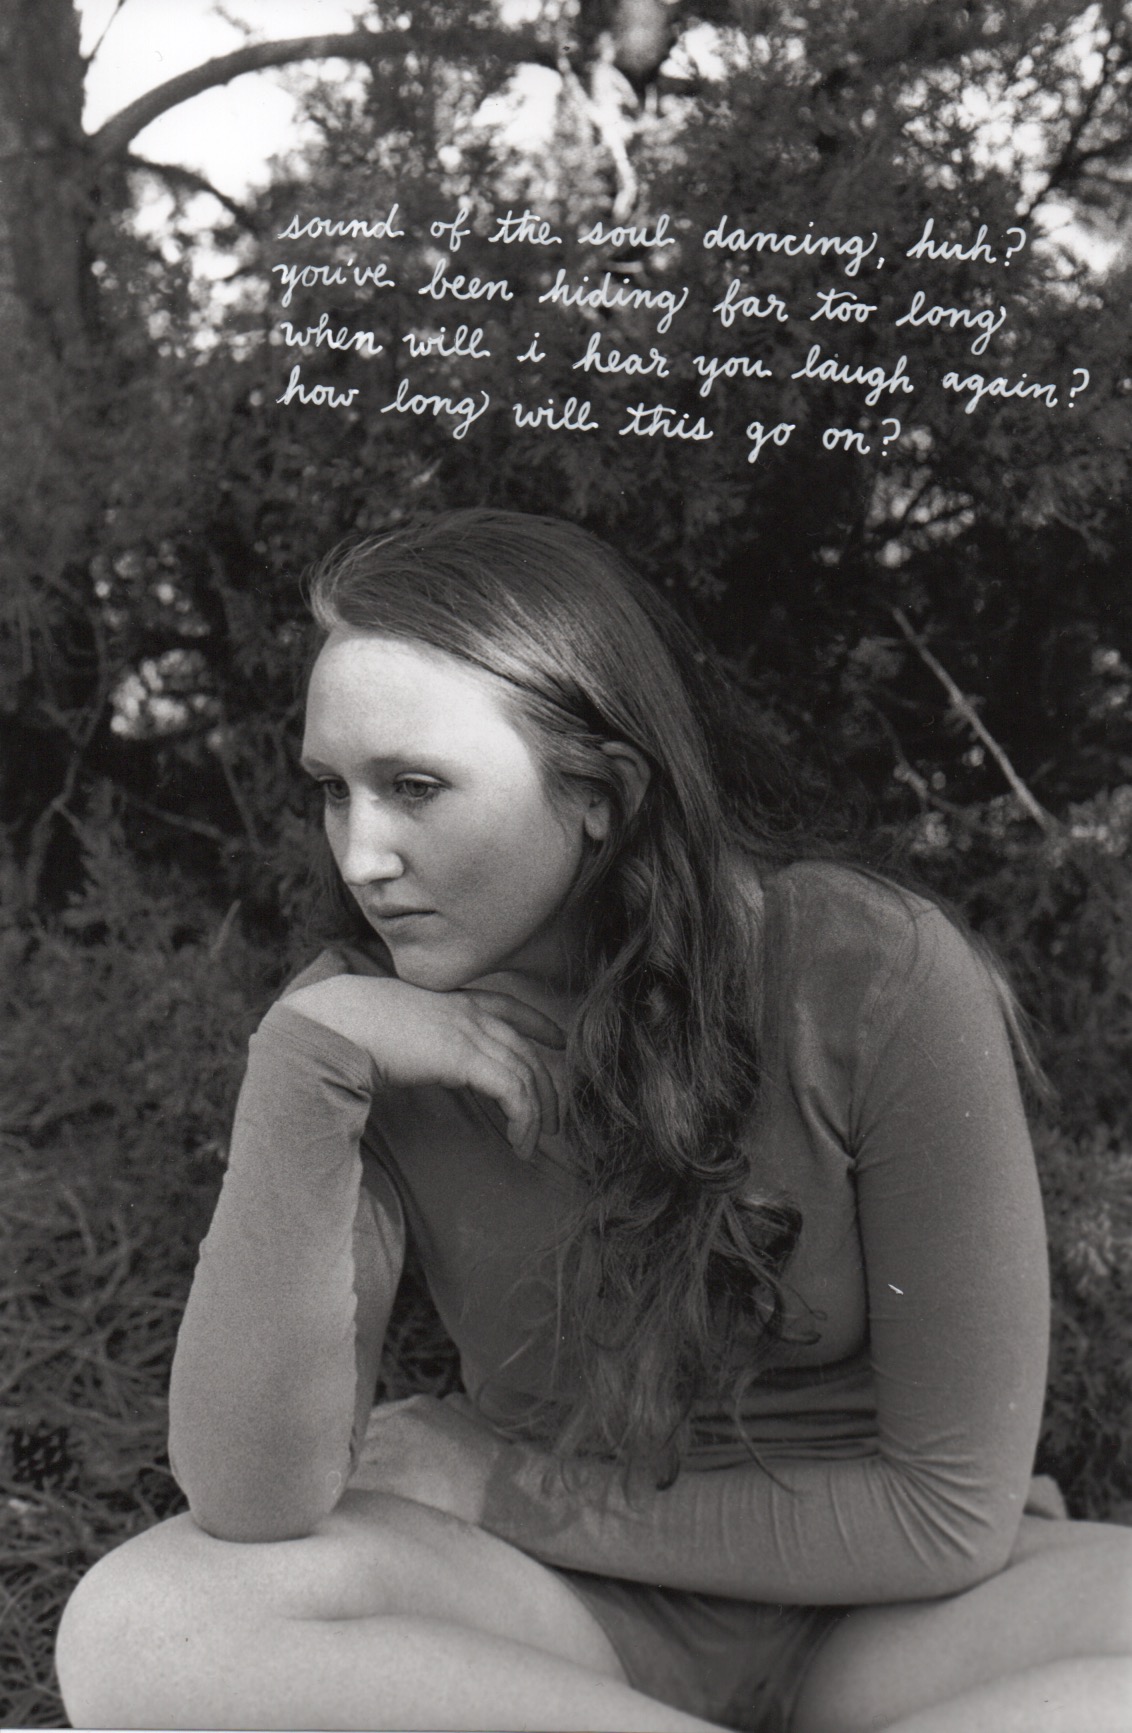 sound of the soul dancing, huh?
you've been hiding far too long
when will i hear you laugh again?
how long will this go on?